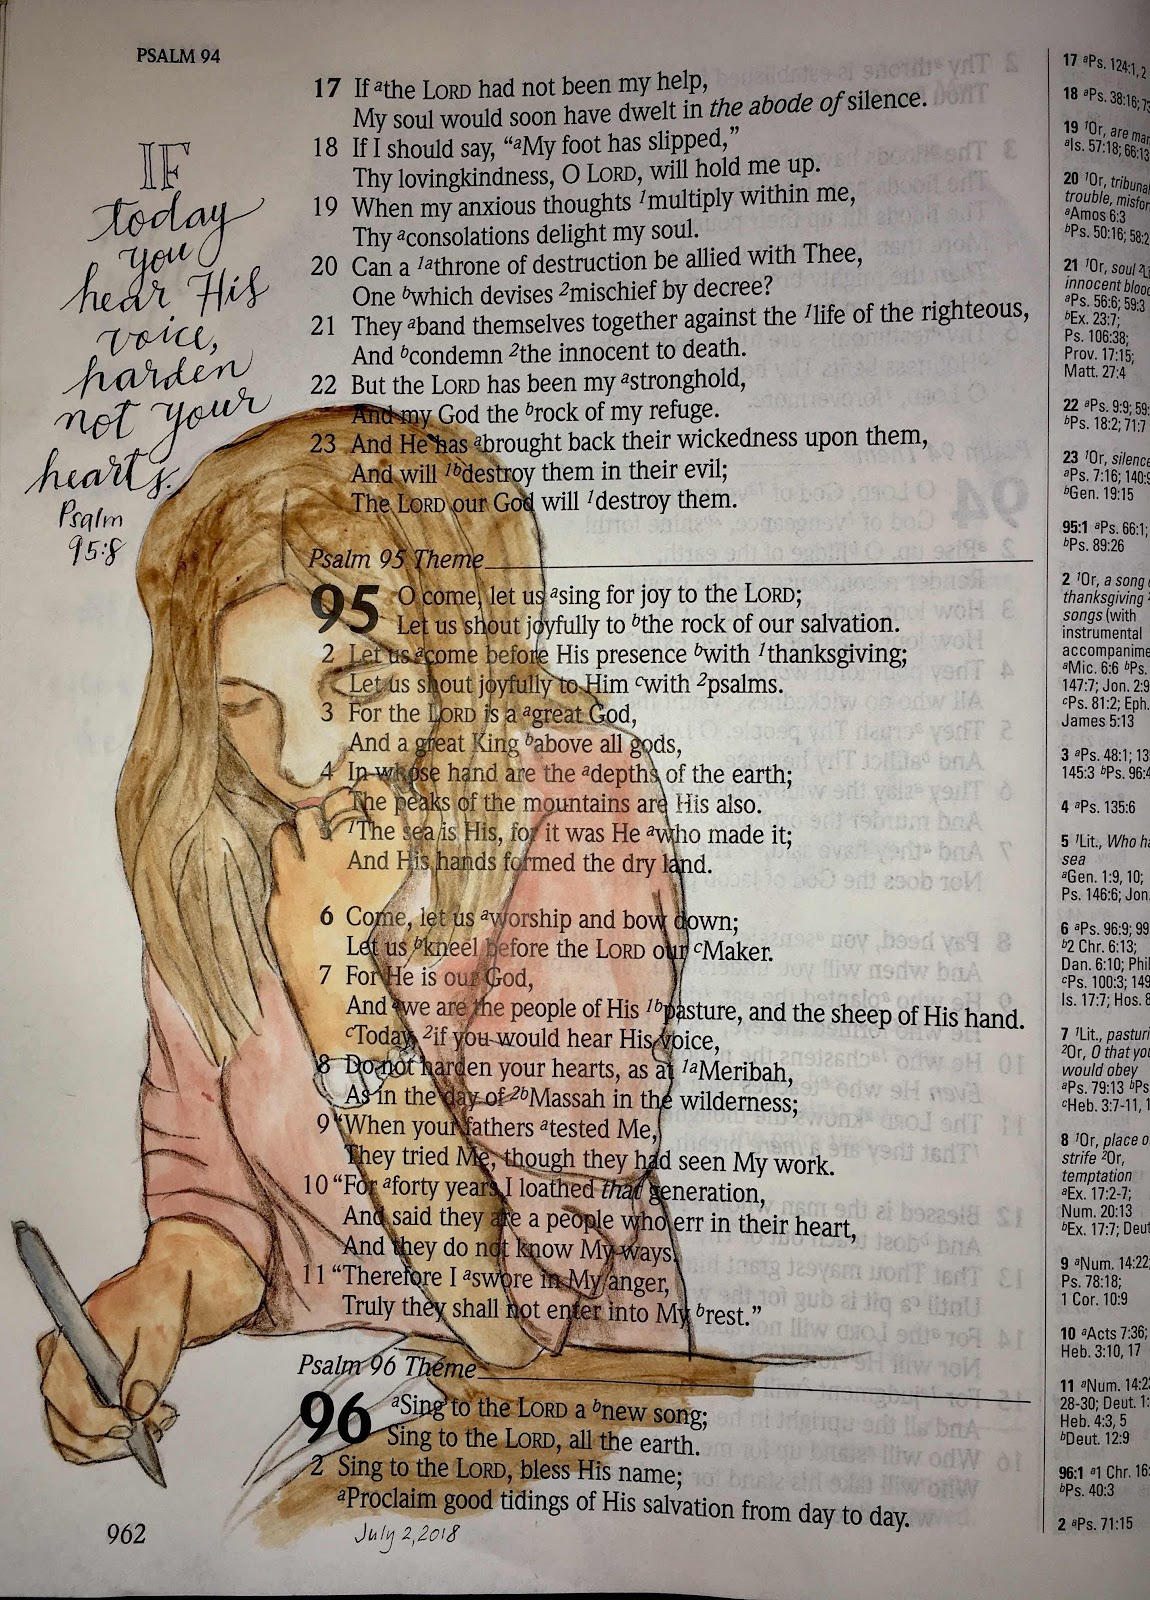 PSALM 94
IF
today
you
hear His
voice,
harden
not your
hearts.
Psalm
95:8
17 If ᵃthe LORD had not been my help,
My soul would soon have dwelt in the abode of silence.
18 If I should say, “ᵃMy foot has slipped,”
Thy lovingkindness, O LORD, will hold me up.
19 When my anxious thoughts ¹multiply within me,
Thy ᵃconsolations delight my soul.
20 Can a ¹ᵃthrone of destruction be allied with Thee,
One ᵇwhich devises ²mischief by decree?
21 They ᵃband themselves together against the ¹life of the righteous,
And ᵇcondemn ²the innocent to death.
22 But the LORD has been my ᵃstronghold,
And my God the ᵇrock of my refuge.
23 And He has ᵃbrought back their wickedness upon them,
And will ¹ᵇdestroy them in their evil;
The LORD our God will ¹destroy them.
Psalm 95 Theme
95 O come, let us ᵃsing for joy to the LORD;
Let us shout joyfully to ᵇthe rock of our salvation.
2 Let us ᵃcome before His presence ᵇwith ¹thanksgiving;
Let us shout joyfully to Him ᶜwith ²psalms.
3 For the LORD is a ᵃgreat God,
And a great King ᵇabove all gods,
4 In whose hand are the ᵃdepths of the earth;
The peaks of the mountains are His also.
5 ¹The sea is His, for it was He ᵃwho made it;
And His hands formed the dry land.
6 Come, let us ᵃworship and bow down;
Let us ᵇkneel before the LORD our ᶜMaker.
7 For He is our God,
And ᵃwe are the people of His ¹ᵇpasture, and the sheep of His hand.
ᶜToday, ²if you would hear His voice,
8 Do not harden your hearts, as at ¹ᵃMeribah,
As in the day of ²ᵇMassah in the wilderness;
9 “When your fathers ᵃtested Me,
They tried Me, though they had seen My work.
10 “For ᵃforty years I loathed that generation,
And said they are a people who err in their heart,
And they do not know My ways.
11 “Therefore I ᵃswore in My anger,
Truly they shall not enter into My ᵇrest.”
Psalm 96 Theme
96 ᵃSing to the LORD a ᵇnew song;
Sing to the LORD, all the earth.
2 Sing to the LORD, bless His name;
ᵃProclaim good tidings of His salvation from day to day.
962
July 2, 2018
17 ᵃPs. 124:1, 2
18 ᵃPs. 38:16;
19 ¹Or, are
ᵃIs. 57:18; 66:13
20 ¹Or,
trouble,
ᵃAmos 6:3
ᵇPs. 50:16; 58:2
21 ¹Or, soul
innocent blood
ᵃPs. 56:6; 59:3
ᵇEx. 23:7;
Ps. 106:38;
Prov. 17:15;
Matt. 27:4
22 ᵃPs. 9:9; 59:
ᵇPs. 18:2; 71:7
23 ¹Or, silence
ᵃPs. 7:16; 140:9
ᵇGen. 19:15
95:1 ᵃPs. 66:1;
ᵇPs. 89:26
2 ¹Or, a song
thanksgiving
songs (with
instrumental
ᵃMic. 6:6 ᵇPs.
147:7; Jon. 2:9
ᶜPs. 81:2; Eph.
James 5:13
3 ᵃPs. 48:1;
145:3 ᵇPs. 96:4
4 ᵃPs. 135:6
5 ¹Lit., Who
sea
ᵃGen. 1:9, 10;
Ps. 146:6; Jon.
6 ᵃPs. 96:9;
ᵇ2 Chr. 6:13;
Dan. 6:10;
ᶜPs. 100:3;
Is. 17:7; Hos. 8
7 ¹Lit.,
²Or, O that
would obey
ᵃPs. 79:13
ᶜHeb. 3:7-11,
8 ¹Or, place
strife ²Or,
temptation
ᵃEx. 17:2-7;
Num. 20:13
ᵇEx. 17:7;
9 ᵃNum. 14:22;
Ps. 78:18;
1 Cor. 10:9
10 ᵃActs 7:36;
Heb. 3:10, 17
11 ᵃNum.
28-30; Deut. 1:
Heb. 4:3, 5
ᵇDeut. 12:9
96:1 ᵃ1 Chr. 16:
ᵇPs. 40:3
2 ᵃPs. 71:15